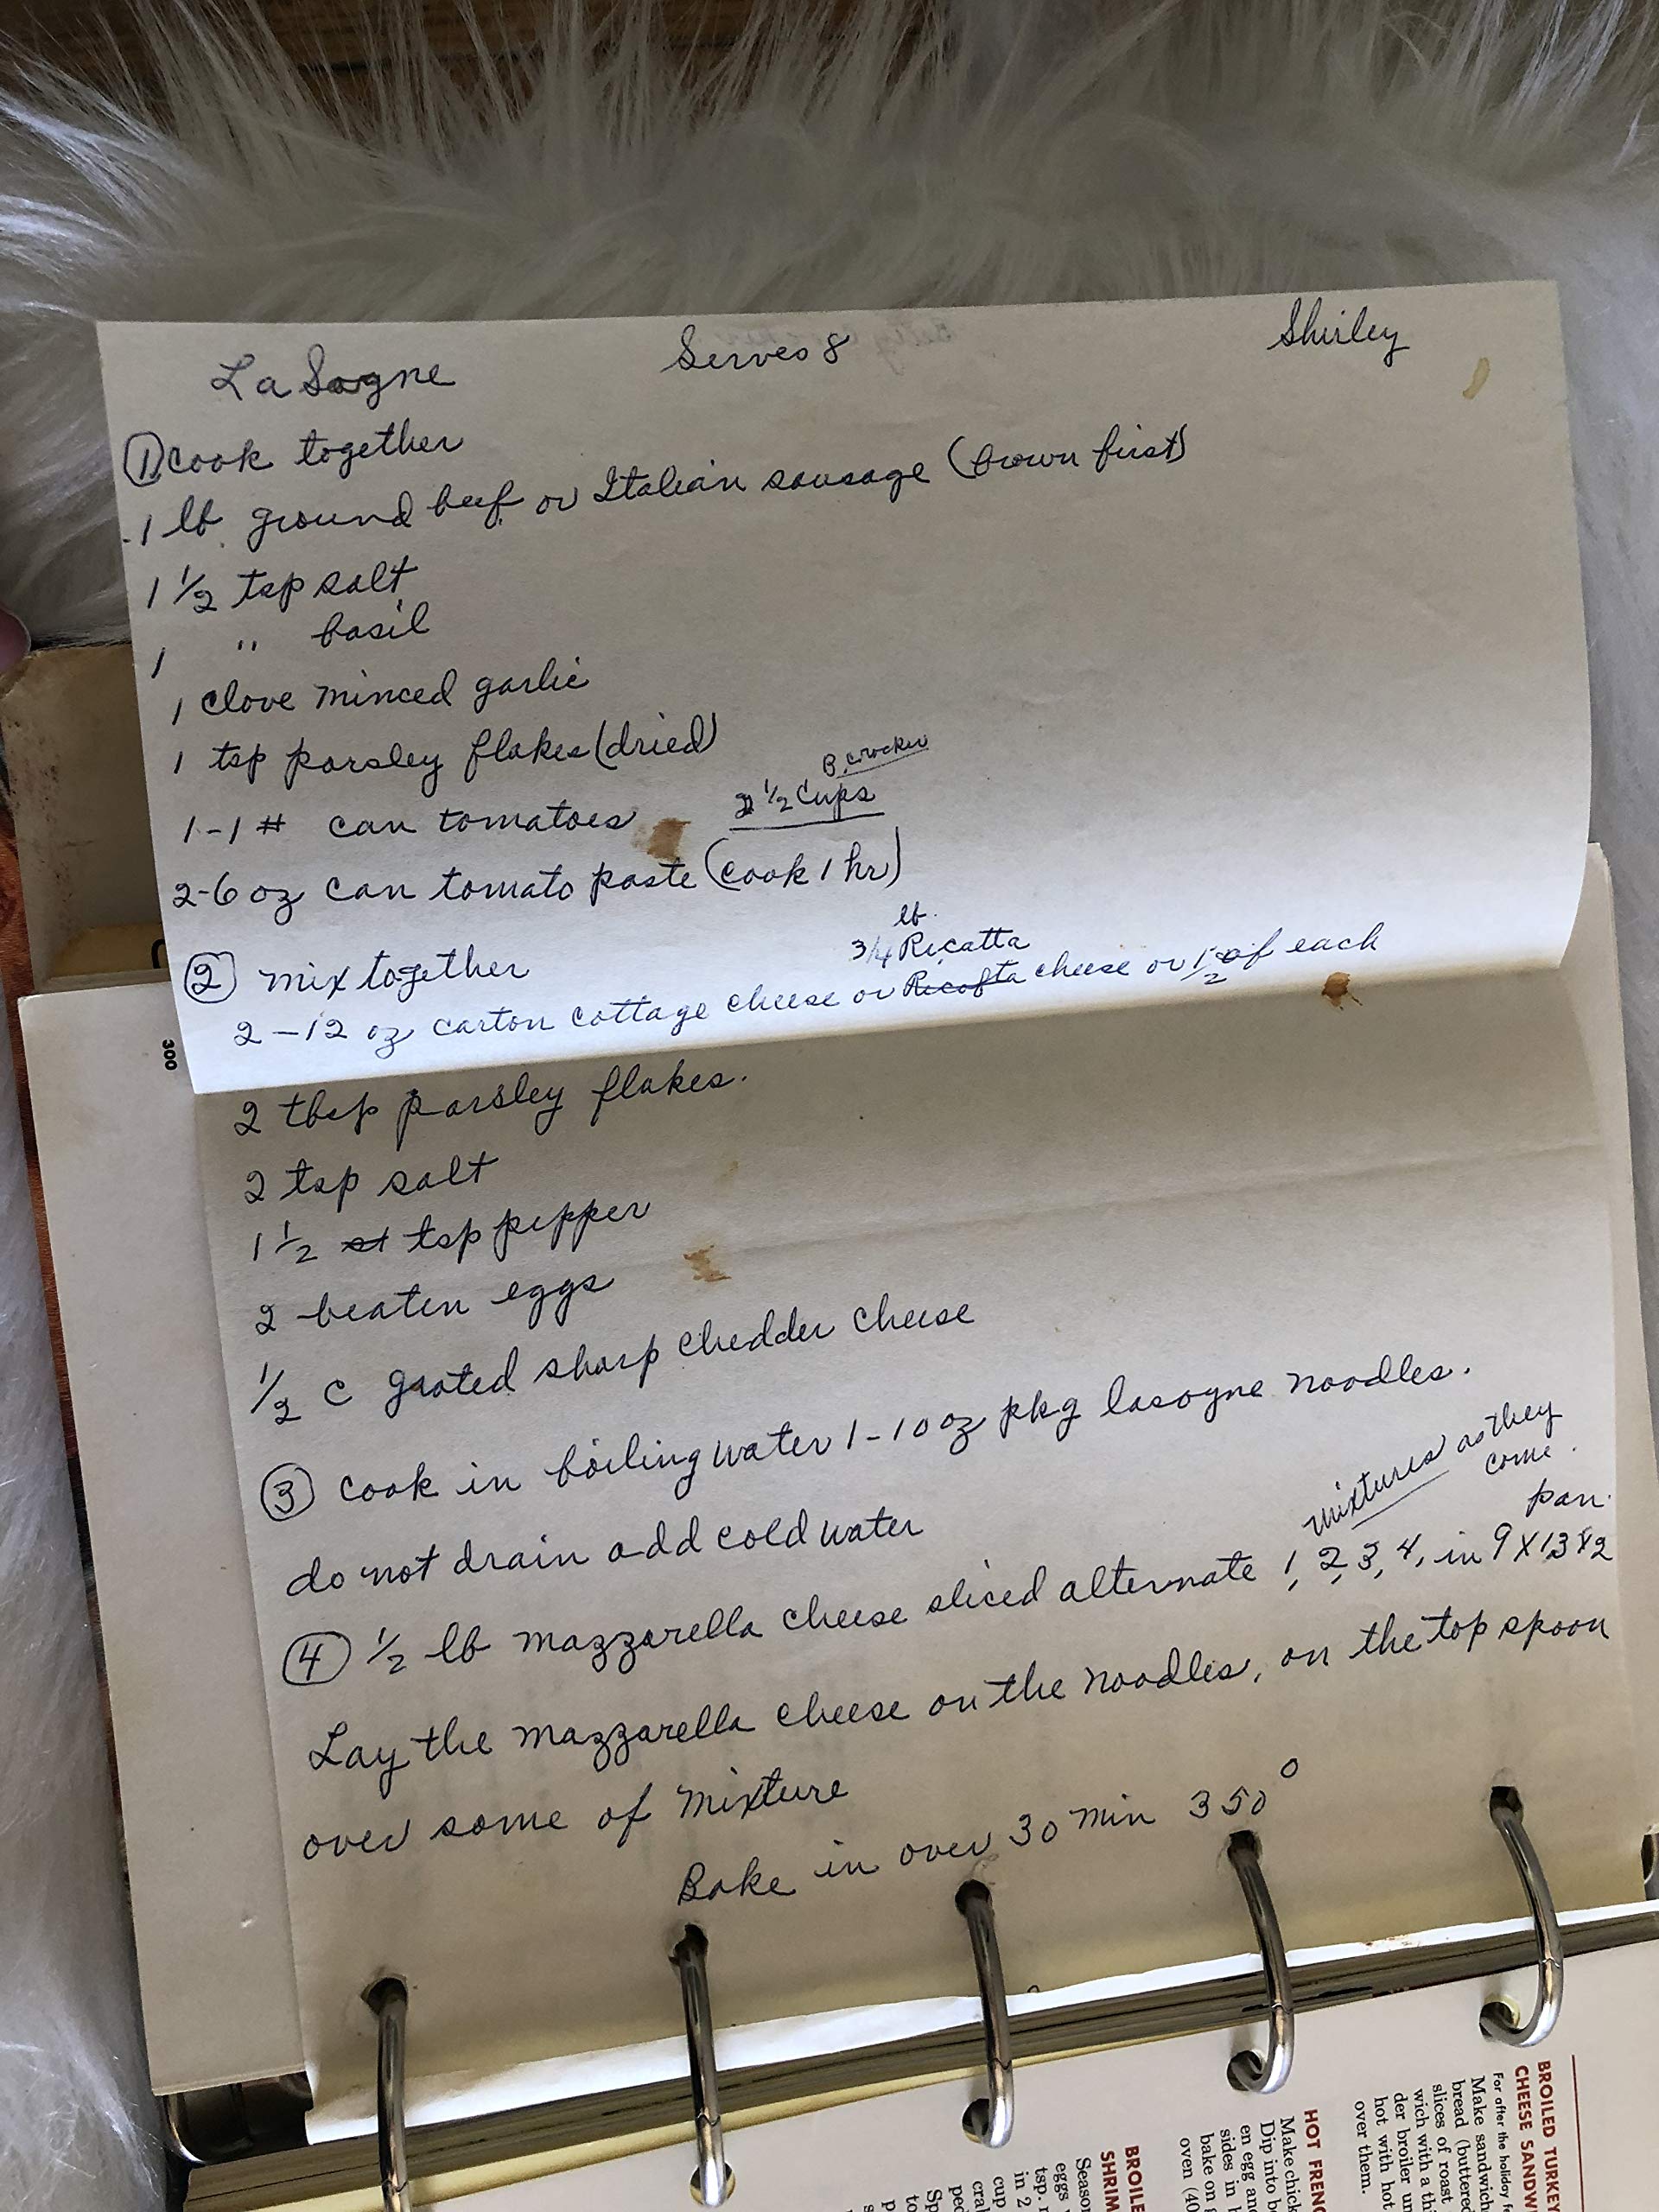 LaSagne Serves 8 Shirley
① Cook together
1 lb ground beef or Italian sausage (brown first)
1 1/2 tsp salt
1 " basil
1 clove minced garlic
1 tsp parsley flakes (dried)
B. crocker
1-1# can tomatoes 2 1/2 Cups
2-6 oz can tomato paste (cook 1 hr)
lb.
3/4 Ricatta
② mix together
2-12 oz carton cottage cheese or Ricotta cheese or 1/2 of each
300
2 tbsp parsley flakes.
2 tsp salt
1 1/2 tsp pepper
2 beaten eggs
1/2 c grated sharp chedder cheese
③ Cook in boiling water 1-10 oz pkg lasogne noodles.
do not drain add cold water
mixtures as they
come.
pan.
④ 1/2 lb mazzarella cheese sliced alternate 1, 2, 3, 4, in 9X13X2
Lay the mazzarella cheese on the noodles, on the top spoon
over some of mixture
Bake in over 30 min 350°
BROILED TURKEY
CHEESE SANDW
For after the holiday f
Make sandwich
bread (buttered
slices of roast
wich with a thi
der broiler un
hot with hot
over them.
HOT FRENC
Make chick
Dip into b
en egg an
sides in
bake on
oven (40
BROILE
SHRIM
Seaso
eggs
tsp.
in 2
cup